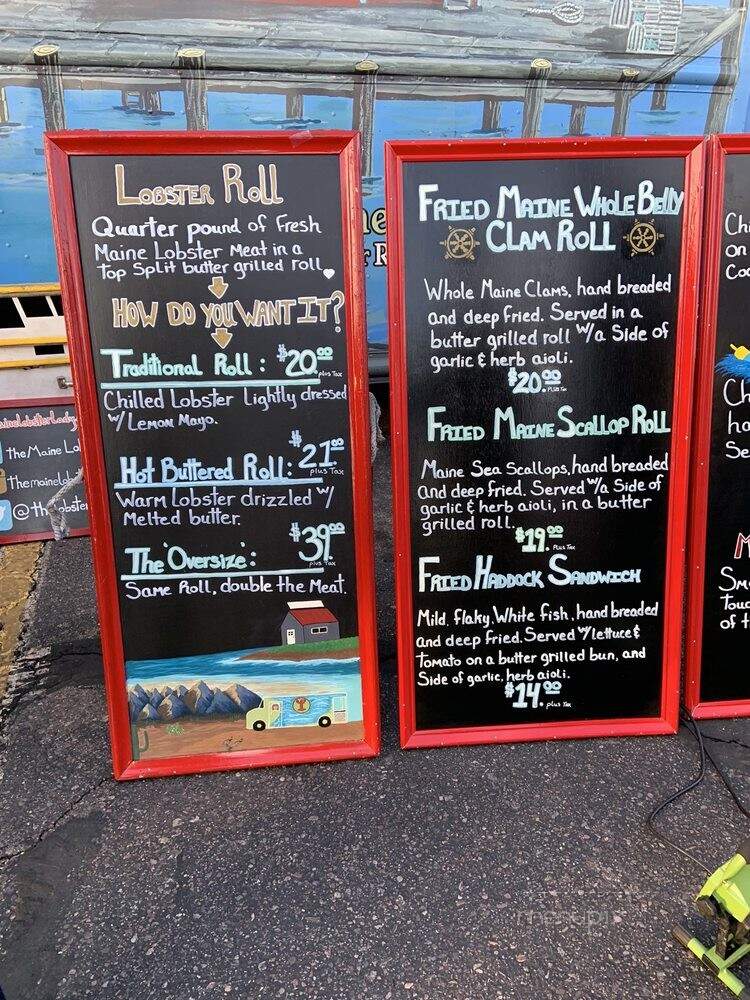 LOBSTER ROLL
Quarter pound of Fresh
Maine Lobster Meat in a
top split butter grilled roll.
HOW DO YOU WANT IT?
Traditional Roll: $20.00
plus Tax
Chilled Lobster Lightly dressed
w/ Lemon Mayo.
Hot Buttered Roll: $21.00
plus Tax
Warm Lobster drizzled w/
Melted butter.
The "Oversize": $39.00
plus Tax
Same Roll, double the Meat.
FRIED MAINE WHOLE BELLY
CLAM ROLL
Whole Maine Clams, hand breaded
and deep fried. Served in a
butter grilled roll w/a Side of
garlic & herb aioli.
$20.00 PLUS Tax
FRIED MAINE SCALLOP ROLL
Maine Sea Scallops, hand breaded
and deep fried. Served w/a Side of
garlic & herb aioli, in a butter
grilled roll.
$19.00 PLUS Tax
FRIED HADDOCK SANDWICH
Mild, flaky, White fish, hand breaded
and deep fried. Served w/lettuce &
Tomato on a butter grilled bun, and
Side of garlic, herb aioli.
$14.00 plus Tax
the Maine Lo
themainelob
@the
Ch
on
Coo
Ch
ha
Se
M
Sm
Touc
of t
menupix